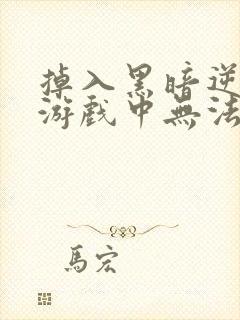 掉入黑暗逆
游戲中無法
馬宏